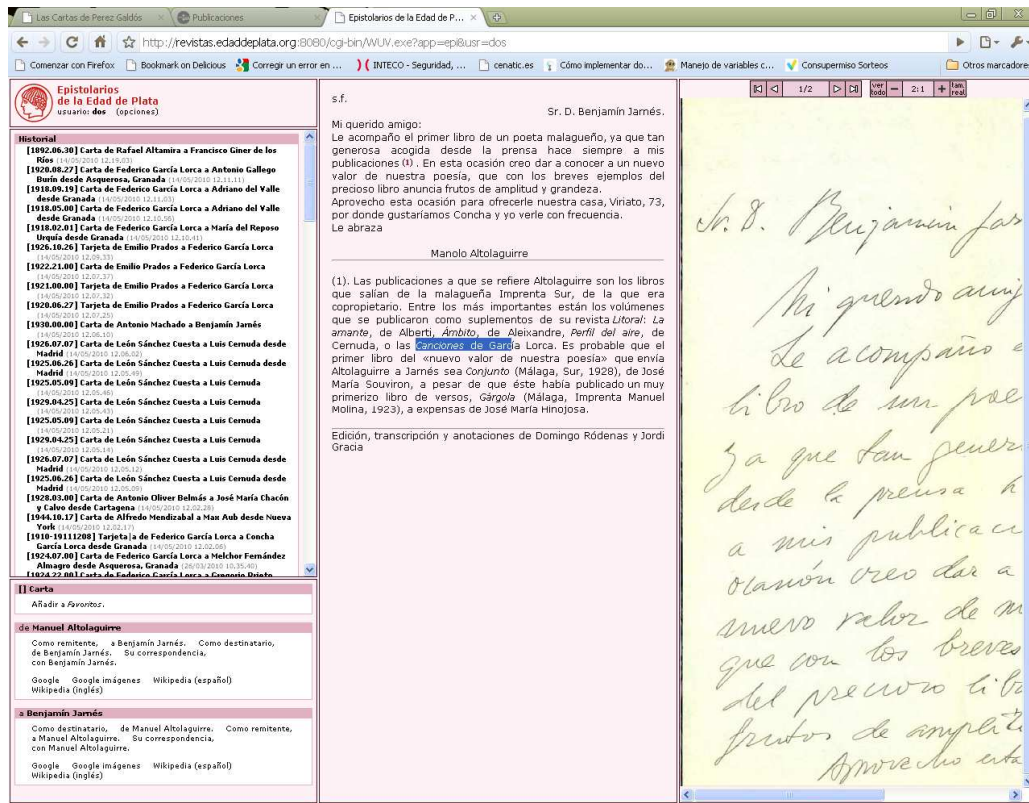 Las Cartas de Perez Galdós
Publicaciones
Epistolarios de la Edad de P...
http://revistas.edaddeplata.org:8080/cgi-bin/WUV.exe?app=epi&usr=dos
Comenzar con Firefox
Bookmark on Delicious
Corregir un error en ...
INTECO - Seguridad, ...
cenatic.es
Cómo implementar do...
Manejo de variables c...
Consupermiso Sorteos
Otros marcadores
Epistolarios
de la Edad de Plata
usuario: dos (opciones)
Historial
[1892.06.30] Carta de Rafael Altamira a Francisco Giner de los
Ríos (14/05/2010 12.19.03)
[1920.08.27] Carta de Federico García Lorca a Antonio Gallego
Burín desde Asquerosa, Granada (14/05/2010 12.11.11)
[1918.09.19] Carta de Federico García Lorca a Adriano del Valle
desde Granada (14/05/2010 12.11.03)
[1918.05.00] Carta de Federico García Lorca a Adriano del Valle
desde Granada (14/05/2010 12.10.56)
[1918.02.01] Carta de Federico García Lorca a María del Reposo
Urquía desde Granada (14/05/2010 12.10.41)
[1926.10.26] Tarjeta de Emilio Prados a Federico García Lorca
(14/05/2010 12.09.33)
[1922.21.00] Carta de Emilio Prados a Federico García Lorca
(14/05/2010 12.07.37)
[1921.00.00] Tarjeta de Emilio Prados a Federico García Lorca
(14/05/2010 12.07.32)
[1920.06.27] Tarjeta de Emilio Prados a Federico García Lorca
(14/05/2010 12.07.25)
[1930.00.00] Carta de Antonio Machado a Benjamín Jarnés
(14/05/2010 12.06.10)
[1926.07.07] Carta de León Sánchez Cuesta a Luis Cernuda desde
Madrid (14/05/2010 12.06.02)
[1925.06.26] Carta de León Sánchez Cuesta a Luis Cernuda desde
Madrid (14/05/2010 12.05.49)
[1925.05.09] Carta de León Sánchez Cuesta a Luis Cernuda
(14/05/2010 12.05.46)
[1929.04.25] Carta de León Sánchez Cuesta a Luis Cernuda
(14/05/2010 12.05.43)
[1925.05.09] Carta de León Sánchez Cuesta a Luis Cernuda
(14/05/2010 12.05.21)
[1929.04.25] Carta de León Sánchez Cuesta a Luis Cernuda
(14/05/2010 12.05.14)
[1926.07.07] Carta de León Sánchez Cuesta a Luis Cernuda desde
Madrid (14/05/2010 12.05.12)
[1925.06.26] Carta de León Sánchez Cuesta a Luis Cernuda desde
Madrid (14/05/2010 12.05.09)
[1928.03.00] Carta de Antonio Oliver Belmás a José María Chacón
y Calvo desde Cartagena (14/05/2010 12.02.28)
[1944.10.17] Carta de Alfredo Mendizabal a Max Aub desde Nueva
York (14/05/2010 12.02.17)
[1910-19111208] Tarjeta|a de Federico García Lorca a Concha
García Lorca desde Granada (14/05/2010 12.02.06)
[1924.07.00] Carta de Federico García Lorca a Melchor Fernández
Almagro desde Asquerosa, Granada (26/03/2010 10.35.40)
[1924.22.00] Carta de Federico García Lorca a Gregorio Prieto
[] Carta
Añadir a Favoritos.
de Manuel Altolaguirre
Como remitente, a Benjamín Jarnés. Como destinatario,
de Benjamín Jarnés. Su correspondencia,
con Benjamín Jarnés.
Google Google imágenes Wikipedia (español)
Wikipedia (inglés)
a Benjamín Jarnés
Como destinatario, de Manuel Altolaguirre. Como remitente,
a Manuel Altolaguirre. Su correspondencia,
con Manuel Altolaguirre.
Google Google imágenes Wikipedia (español)
Wikipedia (inglés)
s.f.
Sr. D. Benjamín Jarnés.
Mi querido amigo:
Le acompaño el primer libro de un poeta malagueño, ya que tan
generosa acogida desde la prensa hace siempre a mis
publicaciones (1) . En esta ocasión creo dar a conocer a un nuevo
valor de nuestra poesía, que con los breves ejemplos del
precioso libro anuncia frutos de amplitud y grandeza.
Aprovecho esta ocasión para ofrecerle nuestra casa, Viriato, 73,
por donde gustaríamos Concha y yo verle con frecuencia.
Le abraza
Manolo Altolaguirre
(1). Las publicaciones a que se refiere Altolaguirre son los libros
que salían de la malagueña Imprenta Sur, de la que era
copropietario. Entre los más importantes están los volúmenes
que se publicaron como suplementos de su revista Litoral: La
amante, de Alberti, Ámbito, de Aleixandre, Perfil del aire, de
Cernuda, o las Canciones de García Lorca. Es probable que el
primer libro del «nuevo valor de nuestra poesía» que envía
Altolaguirre a Jarnés sea Conjunto (Málaga, Sur, 1928), de José
María Souviron, a pesar de que éste había publicado un muy
primerizo libro de versos, Gárgola (Málaga, Imprenta Manuel
Molina, 1923), a expensas de José María Hinojosa.
Edición, transcripción y anotaciones de Domingo Ródenas y Jordi
Gracia
1/2
ver todo
2:1
tam. real
Sr. D. Benjamín Jar
Mi querido amig
Le acompaño e
libro de un poe
ya que tan gener
desde la prensa h
a mis publicaci
ocasión creo dar a
nuevo valor de nu
que con los breves
del precioso lib
frutos de amplit
Aprovecho esta